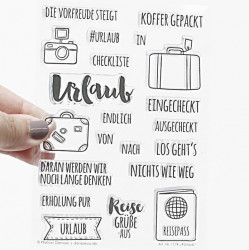 DIE VORFREUDE STEIGT
KOFFER GEPACKT
#URLAUB
IN
CHECKLISTE
Urlaub
EINGECHECKT
ENDLICH
AUSGECHECKT
VON
NACH
LOS GEHT'S
DARAN WERDEN WIR
NOCH LANGE DENKEN
NICHTS WIE WEG
ERHOLUNG PUR
Reise
GRÜßE
AUS
URLAUB
REISEPASS